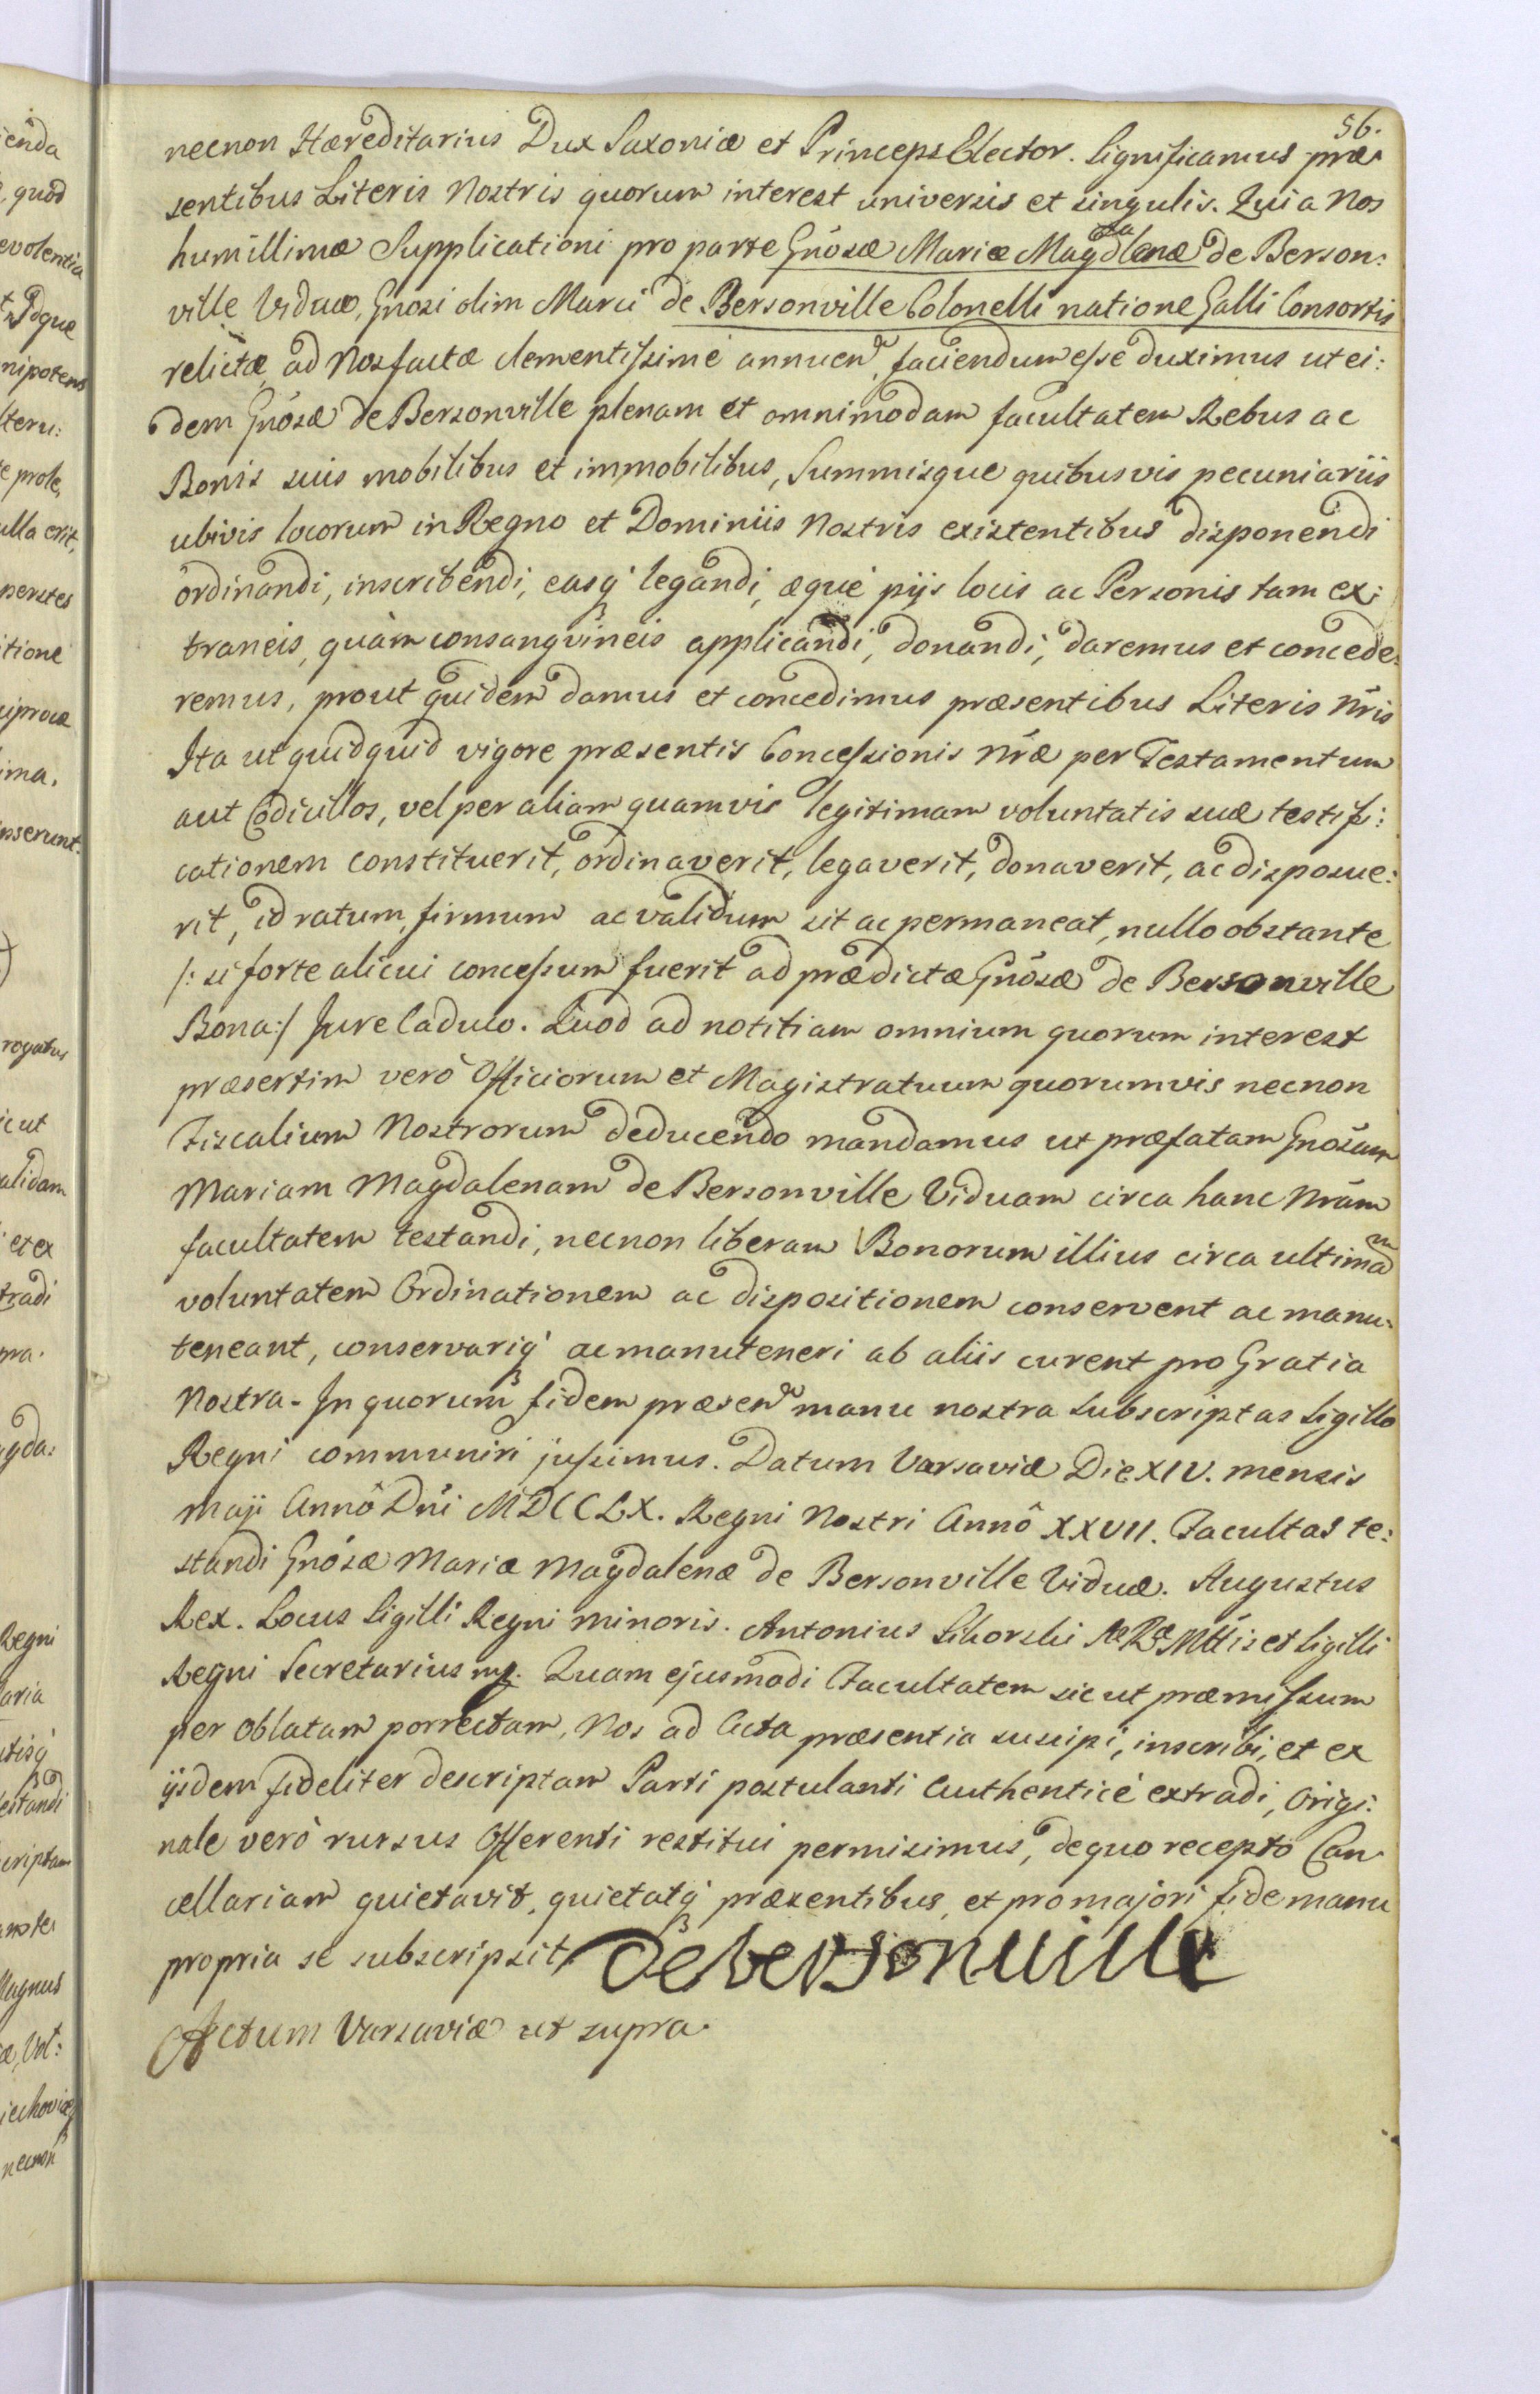 56.
necnon Hæreditarius Dux Saxoniæ et Princeps Elector. Significamus præ-
sentibus Literis Nostris quorum interest universis et singulis. Quia Nos
humillimæ Supplicationi pro parte Gnosæ Mariæ Magdalenæ de Berson:
ville Viduæ, Gnosi olim Marci de Bersonville Colonelli natione Galli Consortis
relictæ, ad Nos factæ clementissimè annuen, faciendum esse duximus ut ei:
dem Gnosæ de Bersonville plenam et omnimodam facultatem Rebus ac
Bonis suis mobilibus et immobilibus, Summisque quibusvis pecuniariis
ubivis locorum in Regno et Dominiis Nostris existentibus disponendi
ordinandi, inscribendi, easq́ legandi, æquè pijs locis ac Personis tam ex:
traneis, quàm consangvineis applicandi, donandi, daremus et concede:
remus, prout quidem damus et concedimus præsentibus Literis Nris
Ita ut quidquid vigore præsentis Concessionis Nræ per Testamentum
aut Codicillos, vel per aliam quamvis legitimam voluntatis suæ testifi:
cationem constituerit, ordinaverit, legaverit, donaverit, ac disposue:
rit, id ratum, firmum ac validum sit ac permaneat, nullo obstante
/: si forte alicui concessum fuerit ad prædictæ Gnosæ de Bersonville
Bona :/ Jure Caduco. Quod ad notitiam omnium quorum interest
præsertim verò Officiorum et Magistratuum quorumvis necnon
Fiscalium Nostrorum deducendo mandamus ut præfatam Gnosam
Mariam Magdalenam de Bersonville Viduam circa hanc Nram
facultatem testandi, necnon liberam Bonorum illius circa ultimam
voluntatem Ordinationem ac dispositionem conservent ac manu-
teneant, conservariq́ ac manuteneri ab aliis curent pro Gratia
Nostra. In quorum fidem præsen manu nostra subscriptas Sigillo
Regni communiri jussimus. Datum Varsaviæ Die XIV. mensis
Maji Annô Dni MDCCLX. Regni Nostri Annô XXVII. Facultas te:
standi Gnosæ Mariæ Magdalenæ de Bersonville Viduæ. Augustus
Rex. Locus Sigilli Regni minoris. Antonius Sikorski Mttis et Sigilli
Regni Secretarius mp. Quam ejusmodi Facultatem sic ut præmissum
per Oblatam porrectam, Nos ad Acta præsentia suscipi, inscribi, et ex
ijsdem fideliter descriptam Parti postulanti Authenticè extradi, Origi:
nale verò rursus Offerenti restitui permisimus, de quo recepto Can-
cellariam quietavit, quietatq́ præsentibus, et pro majori fide manu
propria se subscripsit. De bersonuille
Actum Varsaviæ ut supra.
enda
quod
evolentia
Idque
nipotens
teru:
e prole,
ulla erit,
perstes
itione
iproca
ima.
nserunt.
rogatus
ic ut
alidam
et ex
tradi
pra.
gda:
Regni
aria
tisq́
estandi
criptam
Magnus
æ, Vol:
iechoviæ
necnon